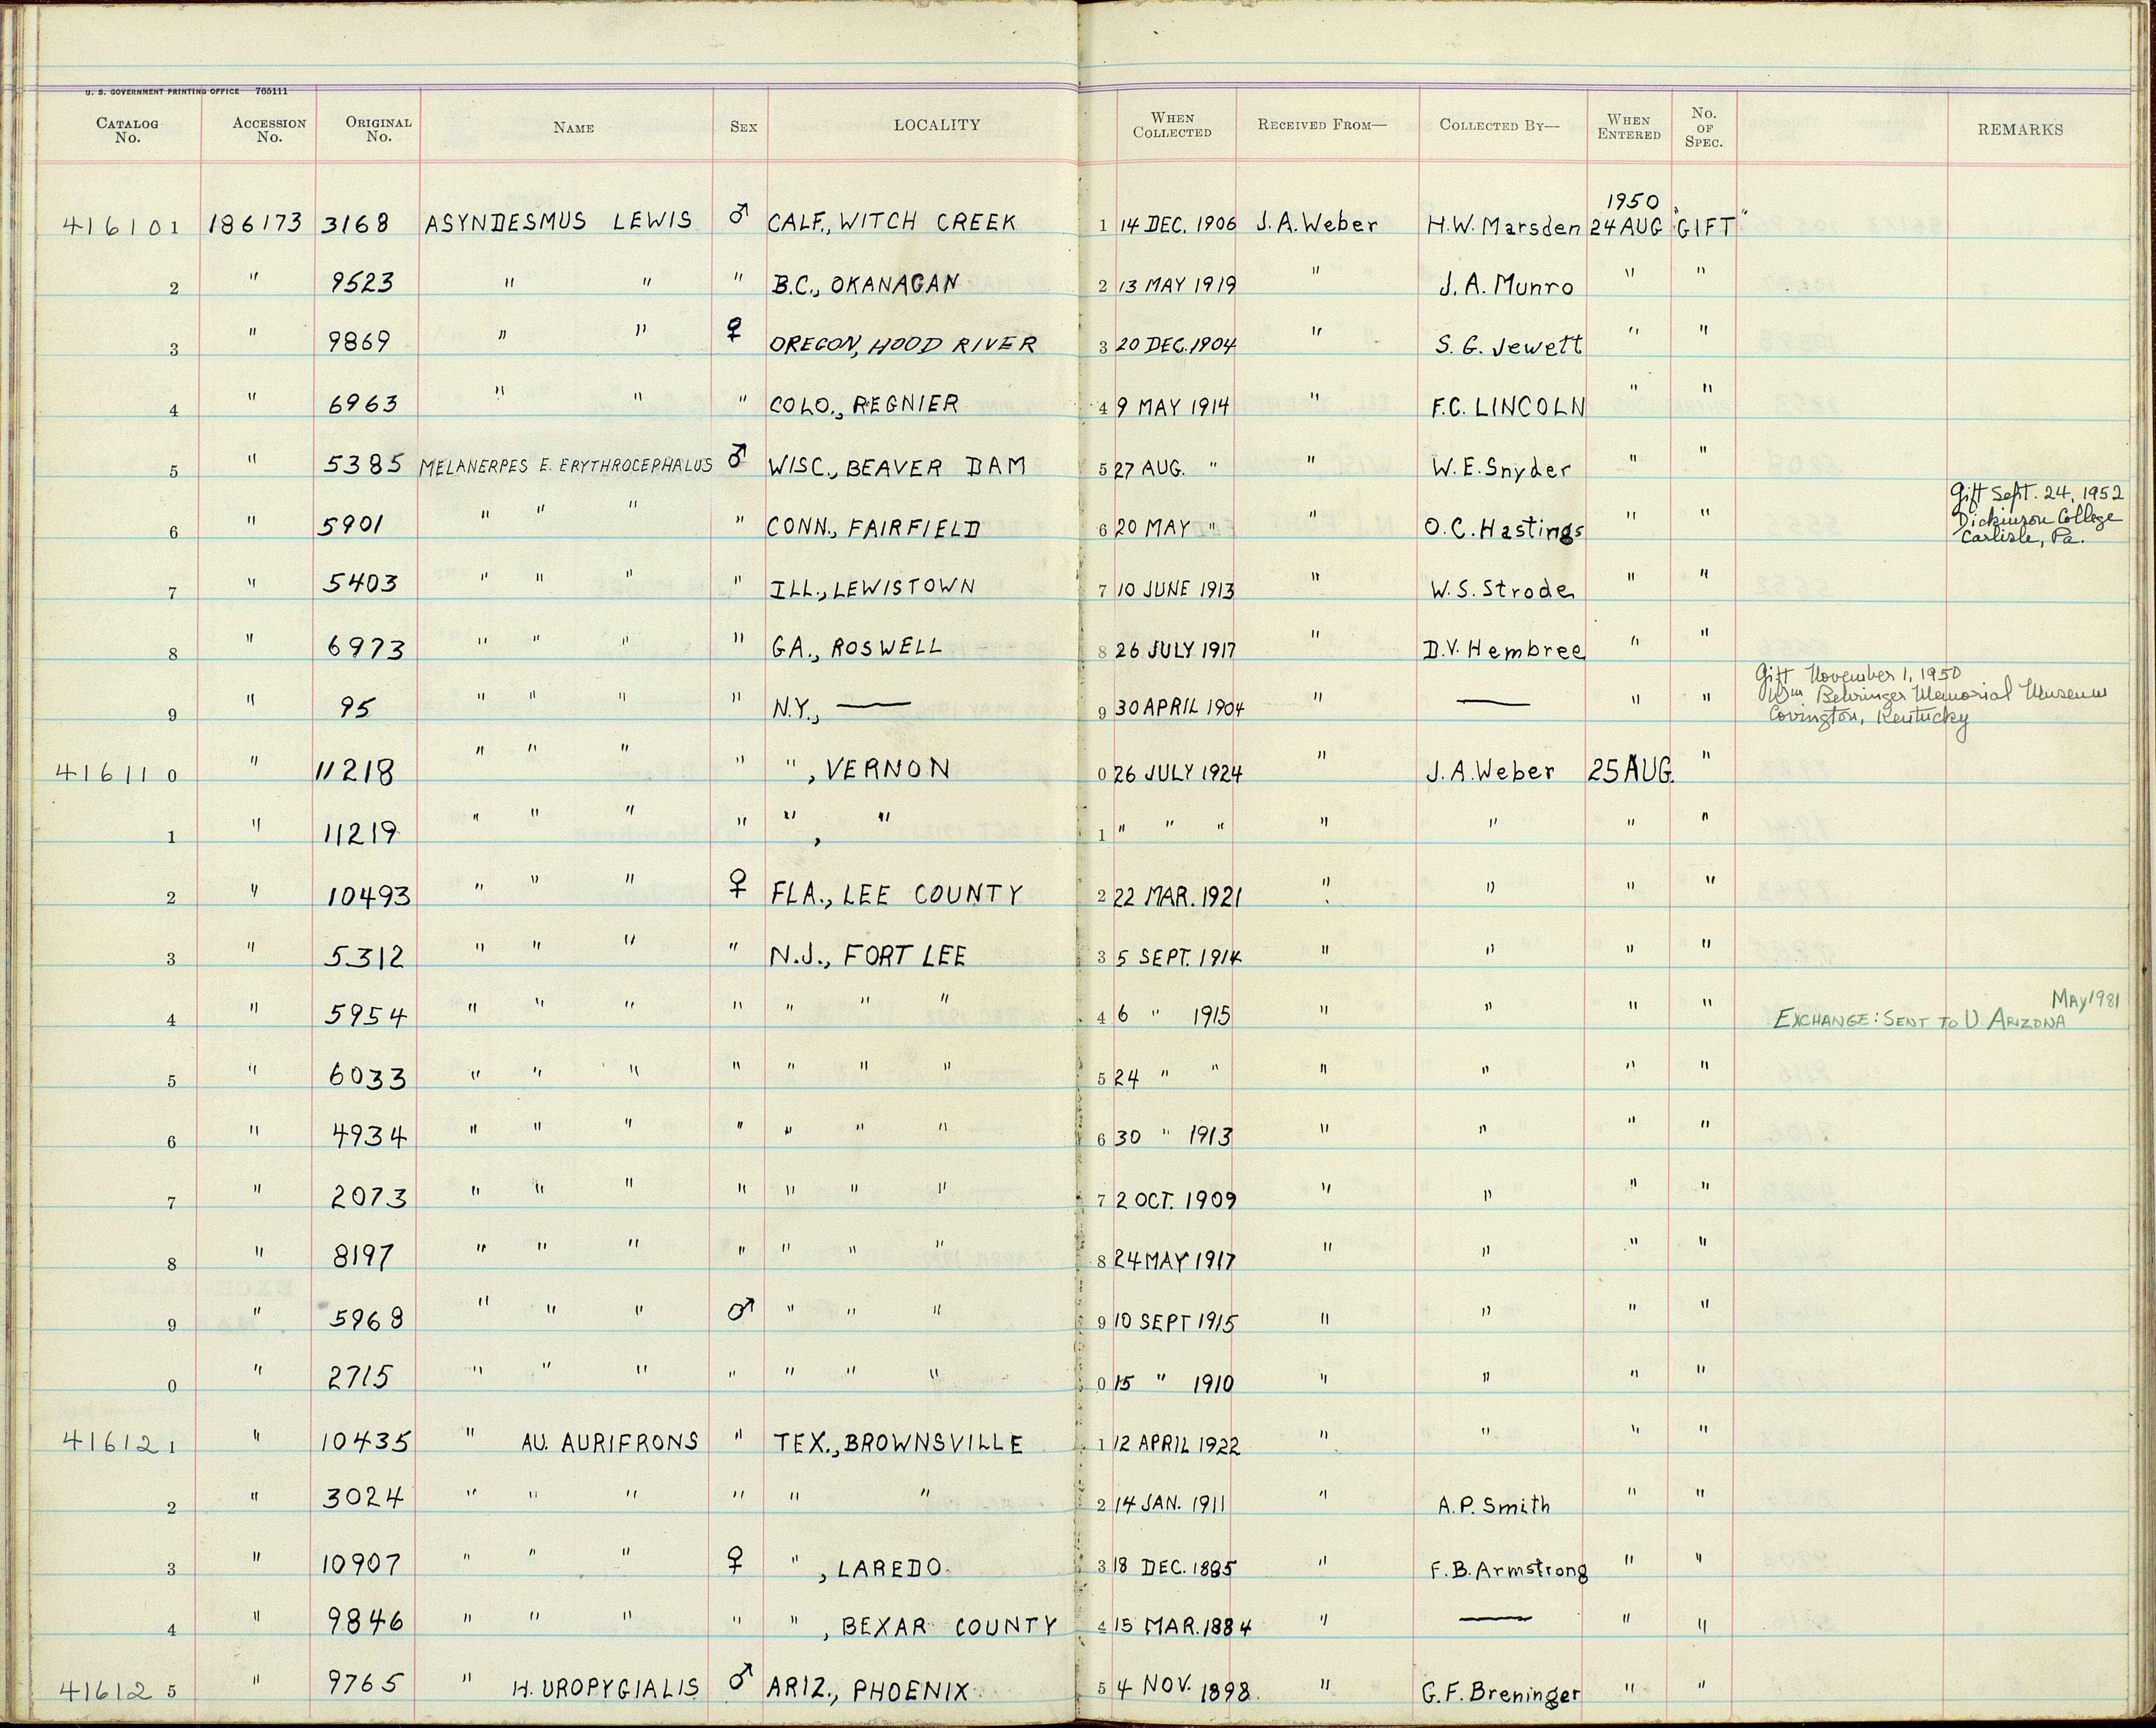 U. S. GOVERNMENT PRINTING OFFICE 765111
CATALOG No. ACCESSION No. ORIGINAL No. NAME SEX LOCALITY WHEN COLLECTED RECEIVED FROM— COLLECTED BY— WHEN ENTERED No. OF SPEC. REMARKS
1950
416101 186173 3168 ASYNDESMUS LEWIS ♂ CALF., WITCH CREEK 1 14 DEC. 1906 J.A. Weber H.W. Marsden 24 AUG "GIFT"
2 " 9523 " " " B.C., OKANAGAN 2 13 MAY 1919 " J.A. Munro " "
3 " 9869 " " ♀ OREGON, HOOD RIVER 3 20 DEC. 1904 " S.G. Jewett " "
4 " 6963 " " " COLO., REGNIER 4 9 MAY 1914 " F.C. LINCOLN " "
5 " 5385 MELANERPES E. ERYTHROCEPHALUS ♂ WISC., BEAVER DAM 5 27 AUG. " " W.E. Snyder " "
6 " 5901 " " " " CONN., FAIRFIELD 6 20 MAY " " O.C. Hastings " " Gift Sept. 24, 1952
Dickinson College
Carlisle, Pa.
7 " 5403 " " " " ILL., LEWISTOWN 7 10 JUNE 1913 " W.S. Strode " "
8 " 6973 " " " " GA., ROSWELL 8 26 JULY 1917 " D.V. Hembree " "
9 " 95 " " " " N.Y., — 9 30 APRIL 1904 " — " " Gift November 1, 1950
Wm Behringer Memorial Museum
Covington, Kentucky
416110 " 11218 " " " " ", VERNON 0 26 JULY 1924 " J.A. Weber 25 AUG. "
1 " 11219 " " " " ", " 1 " " " " " " "
2 " 10493 " " " ♀ FLA., LEE COUNTY 2 22 MAR. 1921 " " " "
3 " 5312 " " " " N.J., FORT LEE 3 5 SEPT. 1914 " " " "
4 " 5954 " " " " " " " 4 6 " 1915 " " " " EXCHANGE: SENT TO U. ARIZONA MAY 1981
5 " 6033 " " " " " " " 5 24 " " " " " "
6 " 4934 " " " " " " " 6 30 " 1913 " " " "
7 " 2073 " " " " " " " 7 2 OCT. 1909 " " " "
8 " 8197 " " " " " " " 8 24 MAY 1917 " " " "
9 " 5968 " " " ♂ " " " 9 10 SEPT 1915 " " " "
0 " 2715 " " " " " " " 0 15 " 1910 " " " "
416121 " 10435 " AU. AURIFRONS " TEX., BROWNSVILLE 1 12 APRIL 1922 " " " "
2 " 3024 " " " " " " 2 14 JAN. 1911 " A.P. Smith " "
3 " 10907 " " " ♀ ", LAREDO 3 18 DEC. 1885 " F.B. Armstrong " "
4 " 9846 " " " " ", BEXAR COUNTY 4 15 MAR. 1884 " — " "
416125 " 9765 " H. UROPYGIALIS ♂ ARIZ., PHOENIX 5 4 NOV. 1898 " G.F. Breninger " "